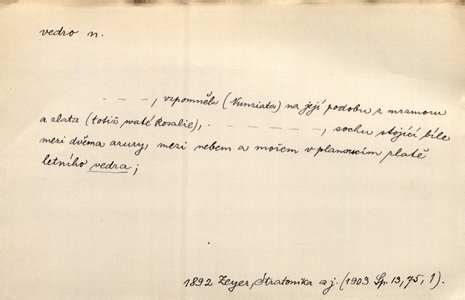 vedro n.
— — — —, vzpomněla (Nunziata) na její podobu z mramoru
a zlata (totiž svaté Rosalie), . — — — — — — —, sochu stojící bíle
mezi dvěma azury, mezi nebem a mořem v planoucím zlatě
letního vedra;
1892 Zeyer, Stratonika a j. (1903 Sp. 13, 75, 1).